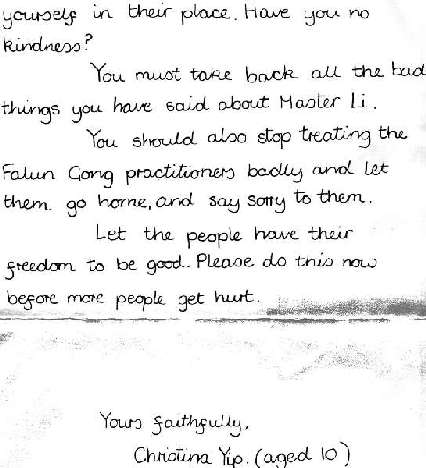 yourself in their place. Have you no
kindness?
You must take back all the bad
things you have said about Master Li.
You should also stop treating the
Falun Gong practitioners badly and let
them go home, and say sorry to them.
Let the people have their
freedom to be good.. Please do this now
before more people get hurt.
Yours faithfully,
Christina Yip. (aged 10)